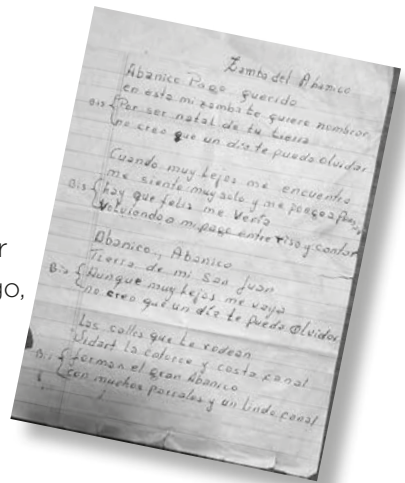 Zamba del Abanico
Abanico Pago querido
en esta mi zamba te quiero nombrar
Bis Por ser natal de tu tierra
no creo que un dia te pueda olvidar
Cuando muy lejos me encuentro
me siento muy solo y me pongo a
Bis hay que felis me veria
volviendo a mi pago entre riso y cantar
Abanico, Abanico
Tierra de mi San Juan
Bis Aunque muy lejos me vaya
no creo que un dia te pueda olvidar
Las calles que te rodean
Vidart la colorce y costa canal
Bis forman el gran Abanico
con muchos parrales y un lindo canal
r
go,